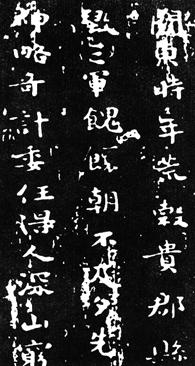 關東時年荒穀貴郡縣
數軍餽朝不及夕先
神略奇計委任得人深山窮